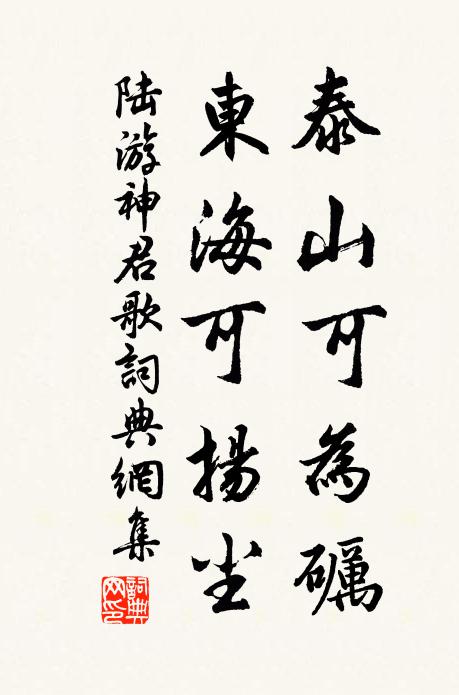 泰山可為礪
東海可揚尘
陆游神君歌詞典網集
詞典网印